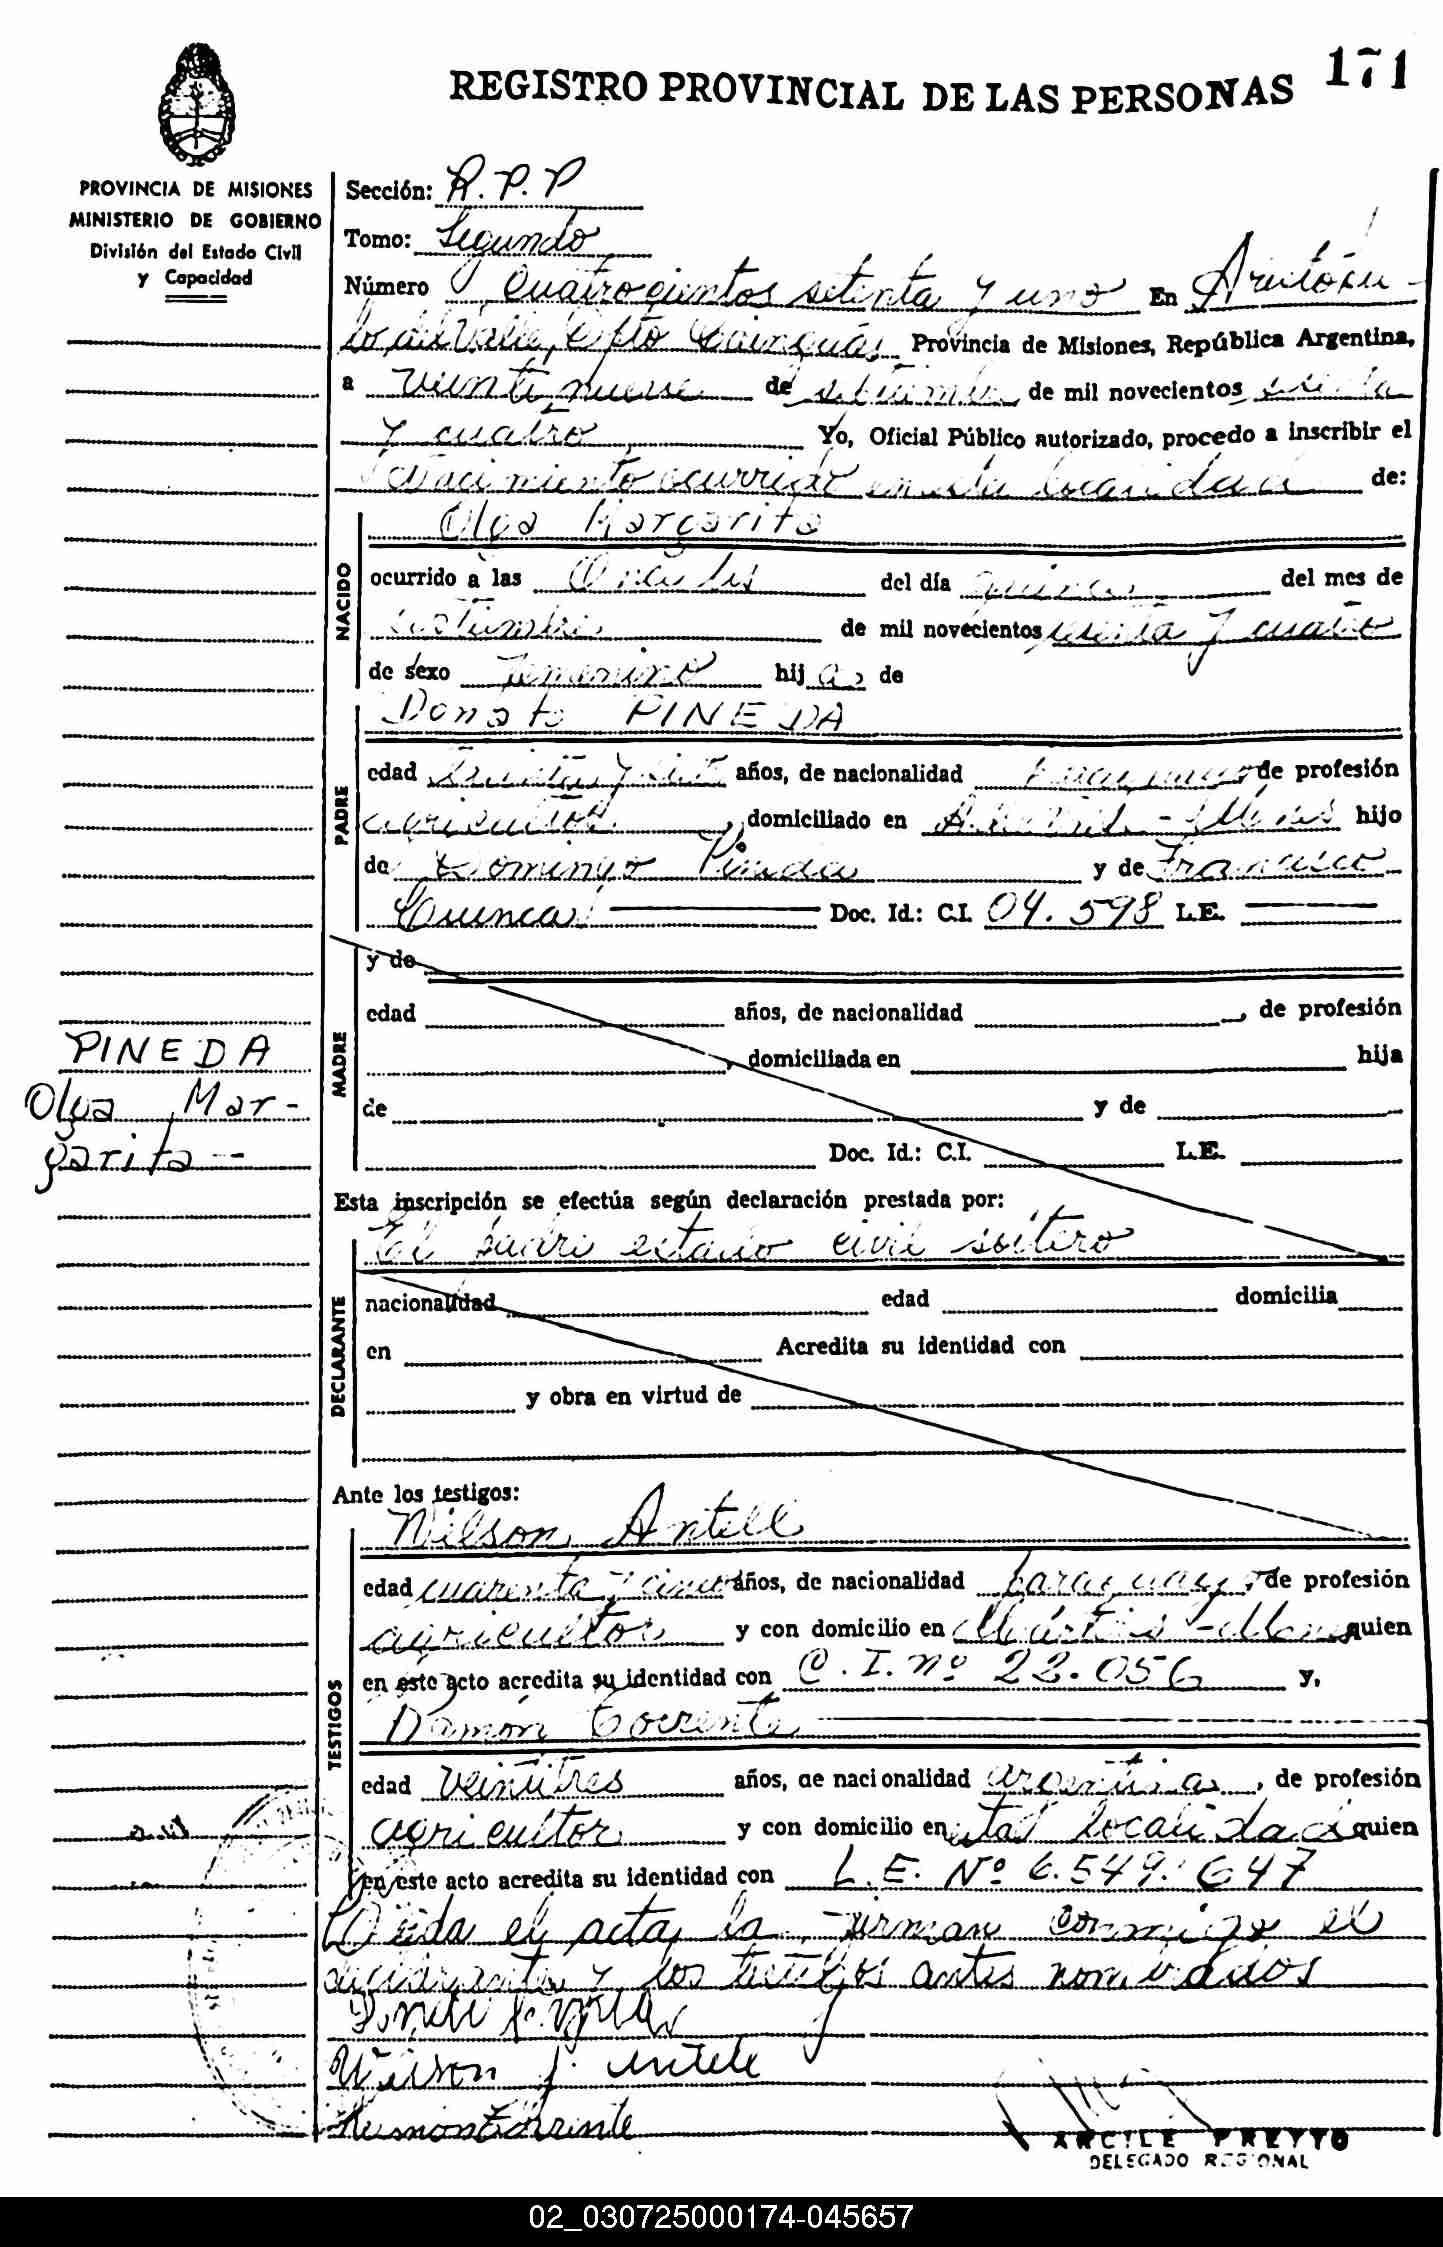 REGISTRO PROVINCIAL DE LAS PERSONAS 171
PROVINCIA DE MISIONES
MINISTERIO DE GOBIERNO
División del Estado Civil
y Capacidad
Sección: R.P.P
Tomo: Segundo
Número Cuatrocientos setenta y uno En Aristóbu-
lo del Valle, Dpto Cainguás Provincia de Misiones, República Argentina,
a veinte nueve de setiembre de mil novecientos sesenta
y cuatro Yo, Oficial Público autorizado, procedo a inscribir el
Nacimiento ocurrido en esta localidad de:
NACIDO
Olga Margarita
ocurrido a las Once hs del día quince del mes de
setiembre de mil novecientos sesenta y cuatro
de sexo femenino hija de
PADRE
Donato PINEDA
edad treinta y años, de nacionalidad paraguayo de profesión
agricultor, domiciliado en hijo
de Domingo Pineda y de Francisca
Cuenca Doc. Id.: C.I. 04.598 L.E.
MADRE
y de
edad años, de nacionalidad , de profesión
, domiciliada en hija
de y de
Doc. Id.: C.I. L.E.
PINEDA
Olga Mar-
garita--
Esta inscripción se efectúa según declaración prestada por:
DECLARANTE
El padre estado civil soltero
nacionalidad edad domicilia
en Acredita su identidad con
y obra en virtud de
Ante los testigos:
TESTIGOS
Wilson Antell
edad cuarenta y cinco años, de nacionalidad paraguayo, de profesión
agricultor y con domicilio en quien
en este acto acredita su identidad con C.I. nº 22.056 y,
Ramón Torrente
edad veintitres años, de nacionalidad argentina, de profesión
agricultor y con domicilio en esta localidad quien
en este acto acredita su identidad con L.E. Nº 6.549.647
Leída el acta, la firman conmigo el
declarante y los testigos antes nombrados
Wilson J. Antele
Ramon Torrente
ARCILE PREYTO
DELEGADO REGIONAL
02_030725000174-045657